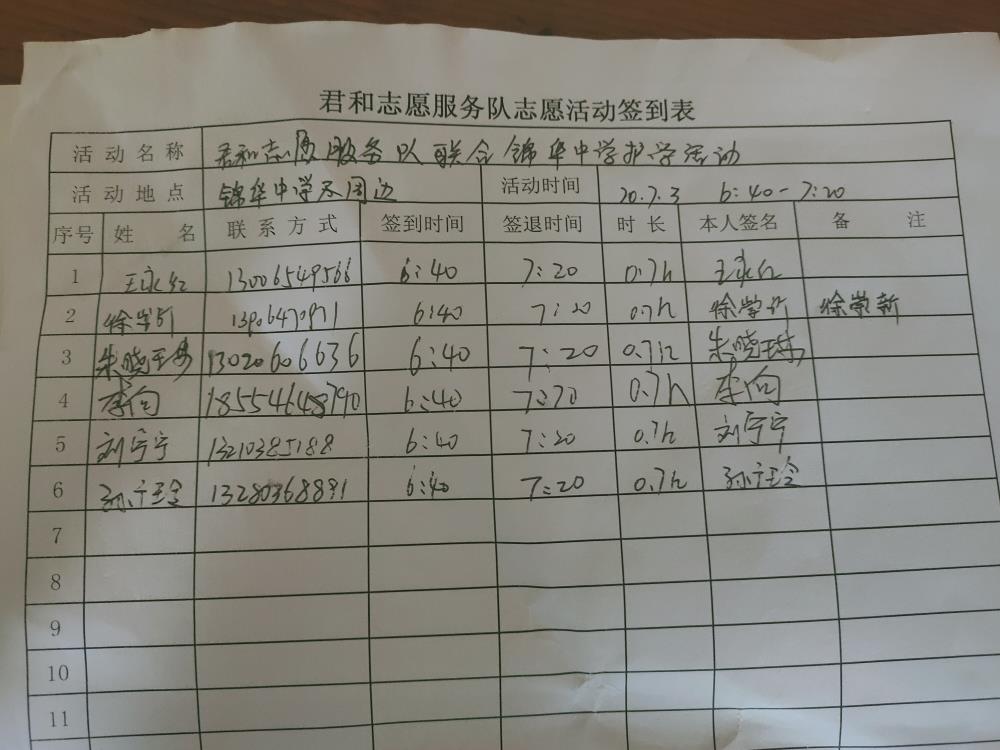 君和志愿服务队志愿活动签到表
活动名称 君和志愿服务队联合锦华中学护学活动
活动地点 锦华中学东周边 活动时间 20.7.3 6:40-7:20
序号 姓名 联系方式 签到时间 签退时间 时长 本人签名 备注
1 王永红 13006549566 6:40 7:20 0.7h 王永红
2 徐学新 6:40 7:20 0.7h 徐学新 徐崇新
3 朱晓琳 13020606636 6:40 7:20 0.7h 朱晓琳
4 李向 18554648790 6:40 7:20 0.7h 李向
5 刘宁宁 13210385188 6:40 7:20 0.7h 刘宁宁
6 孙广玲 13280368891 6:40 7:20 0.7h 孙广玲
7
8
9
10
11